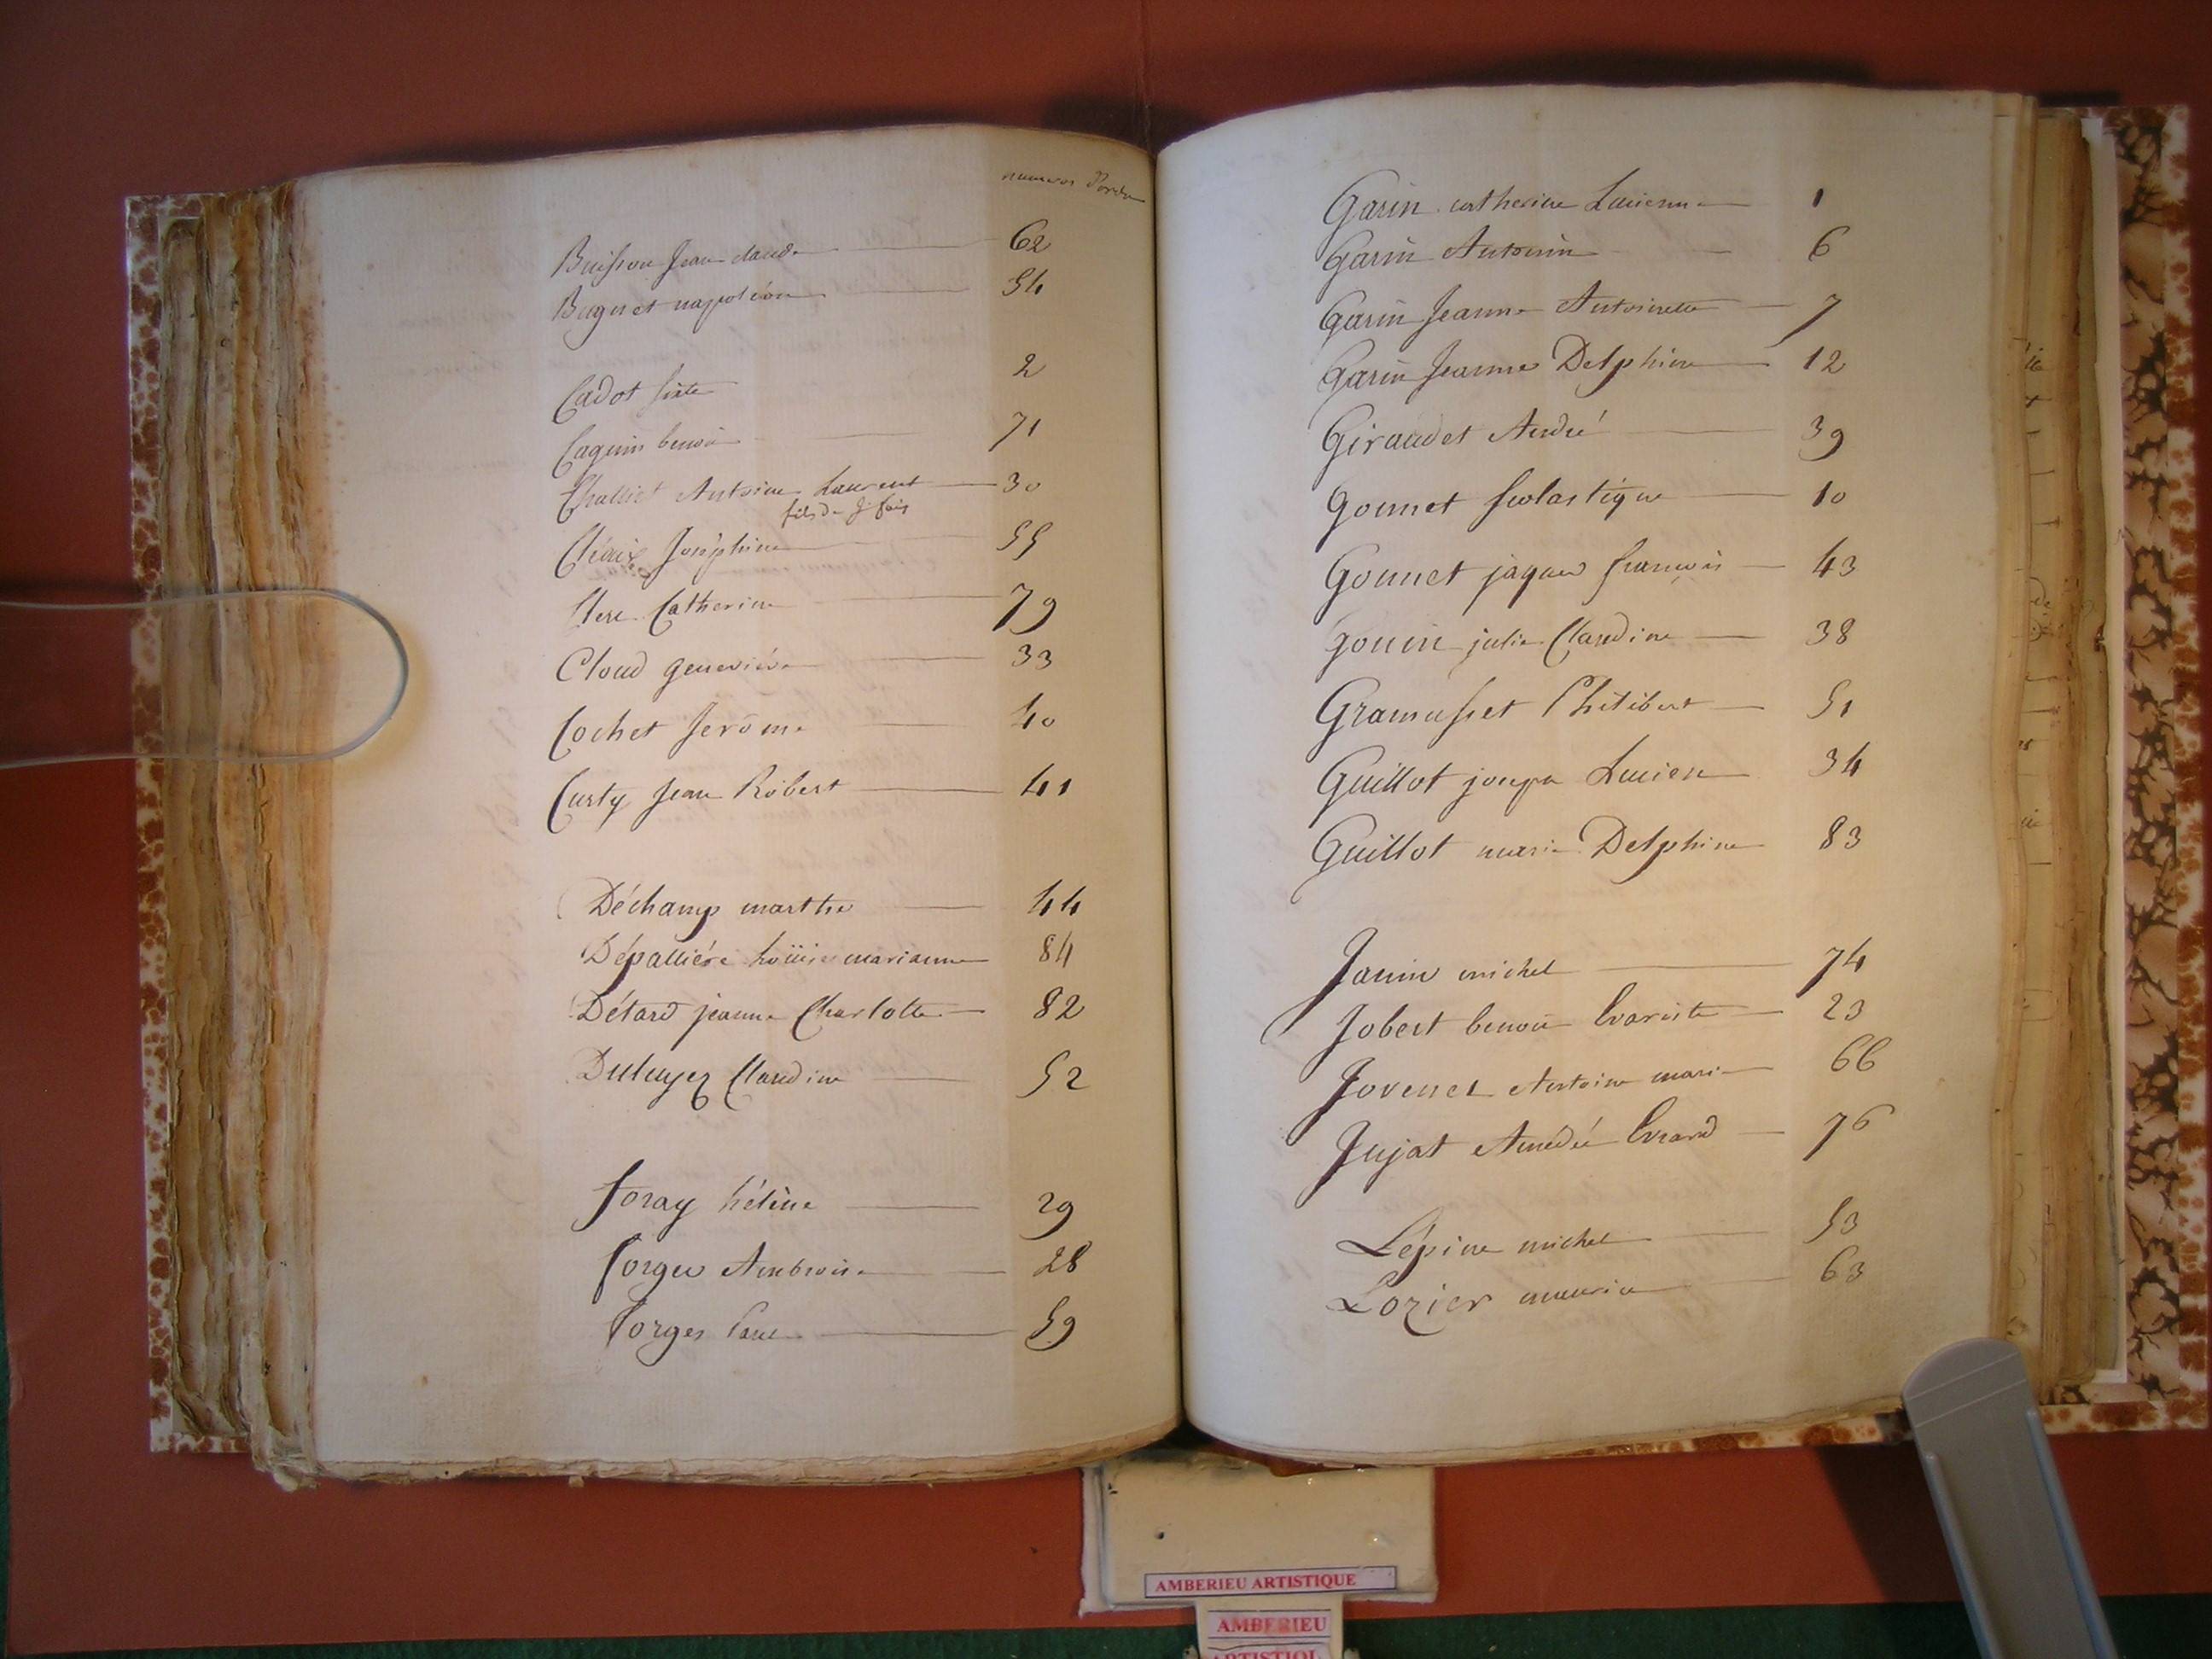 numeros d'ordre
Buisson Jean claude 62
Buguet napoléon 54
Cadot sixte 2
Caguin benoit 71
Challiet Antoine Laurent 30
fils de j. fois
Joséphine 55
Clerc Catherine 79
Cloud geneviève 33
Cochet Jerôme 40
Curty Jean Robert 41
Déchamp marthe 44
Dépallière Loüise marianne 84
Détard jeanne Charlotte 82
Duluyez Claudine 52
foray hélène 29
forges Ambroise 28
forges Paul 59
Garin catherine Lucienne 1
Garin Antonin 6
Garin Jeanne Antoinette 7
Garin Jeanne Delphine 12
Giraudet André 39
Gonnet scolastique 10
Gonnet jaques francois 43
gonin julie Claudine 38
Gramusset Philibert 51
Guillot joseph Lucien 34
Guillot marie Delphine 83
Janin michel 74
Jobert benoit Evariste 23
Jovenet Antoine marie 66
Jujat Amédée Evrard 76
Lépine michel 53
Lozier 63
AMBERIEU ARTISTIQUE
AMBERIEU
ARTISTIQUE